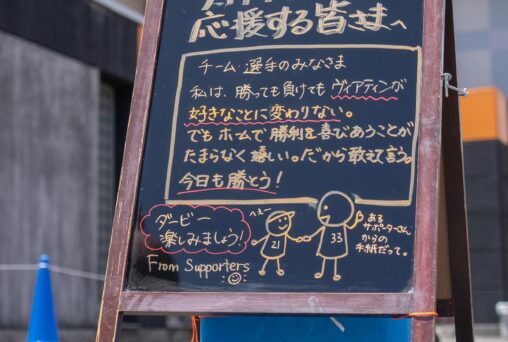 応援する皆さまへ
チーム・選手のみなさま
私は、勝っても負けても ヴィアティンが
好きなことに変わりない。
でもホームで勝利を喜びあうことが
たまらなく嬉しい。だから敢えて言う。
今日も勝とう!
ダービー
楽しみましょう!
From Supporters
へぇー
21
33
ある
サポーターさん
からの
手紙だって。